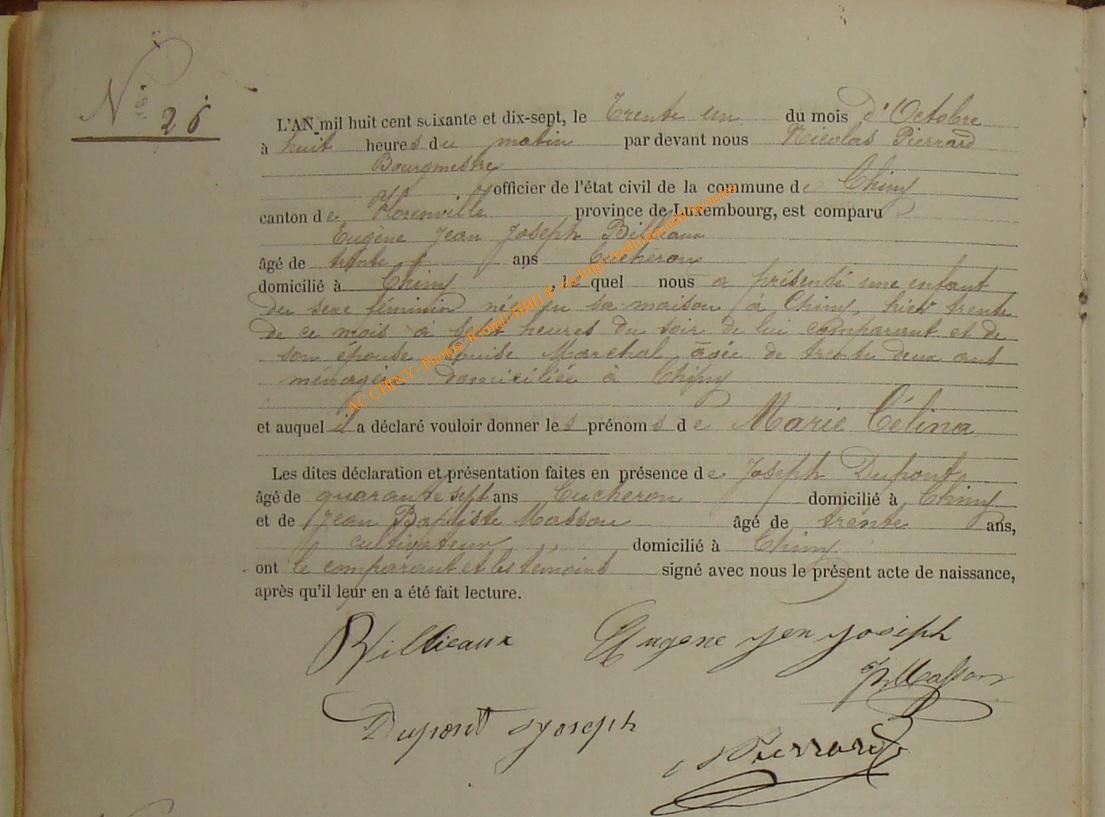 N° 26
L'AN mil huit cent soixante et dix-sept, le Trente un du mois d'Octobre
à huit heures du matin par devant nous Nicolas Pierrard
Bourgmestre
officier de l'état civil de la commune de Chiny
canton de Florenville province de Luxembourg, est comparu
Eugène Jean Joseph Billiaux
âgé de trente ans Bucheron
domicilié à Chiny, le quel nous a présenté une enfant
du sexe féminin née en sa maison à Chiny, hier trente
de ce mois à sept heures du soir de lui comparant et de
son épouse Louise Maréchal, âgée de trente deux ans
ménagère domiciliée à Chiny
et auquel il a déclaré vouloir donner les prénoms de Marie Célina
Les dites déclaration et présentation faites en présence de Joseph Dupont
âgé de quarante sept ans Bucheron domicilié à Chiny
et de Jean Baptiste Masson âgé de trente ans,
cultivateur domicilié à Chiny
ont le comparant et les témoins signé avec nous le présent acte de naissance,
après qu'il leur en a été fait lecture.
Billieaux Eugene jen joseph
Masson
Dupont joseph
N Pierrard
AC CHINY- Photos